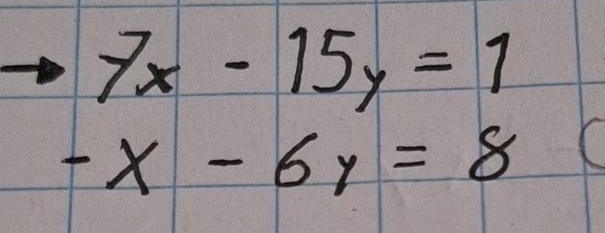 → 7x - 15y = 1
-x - 6y = 8